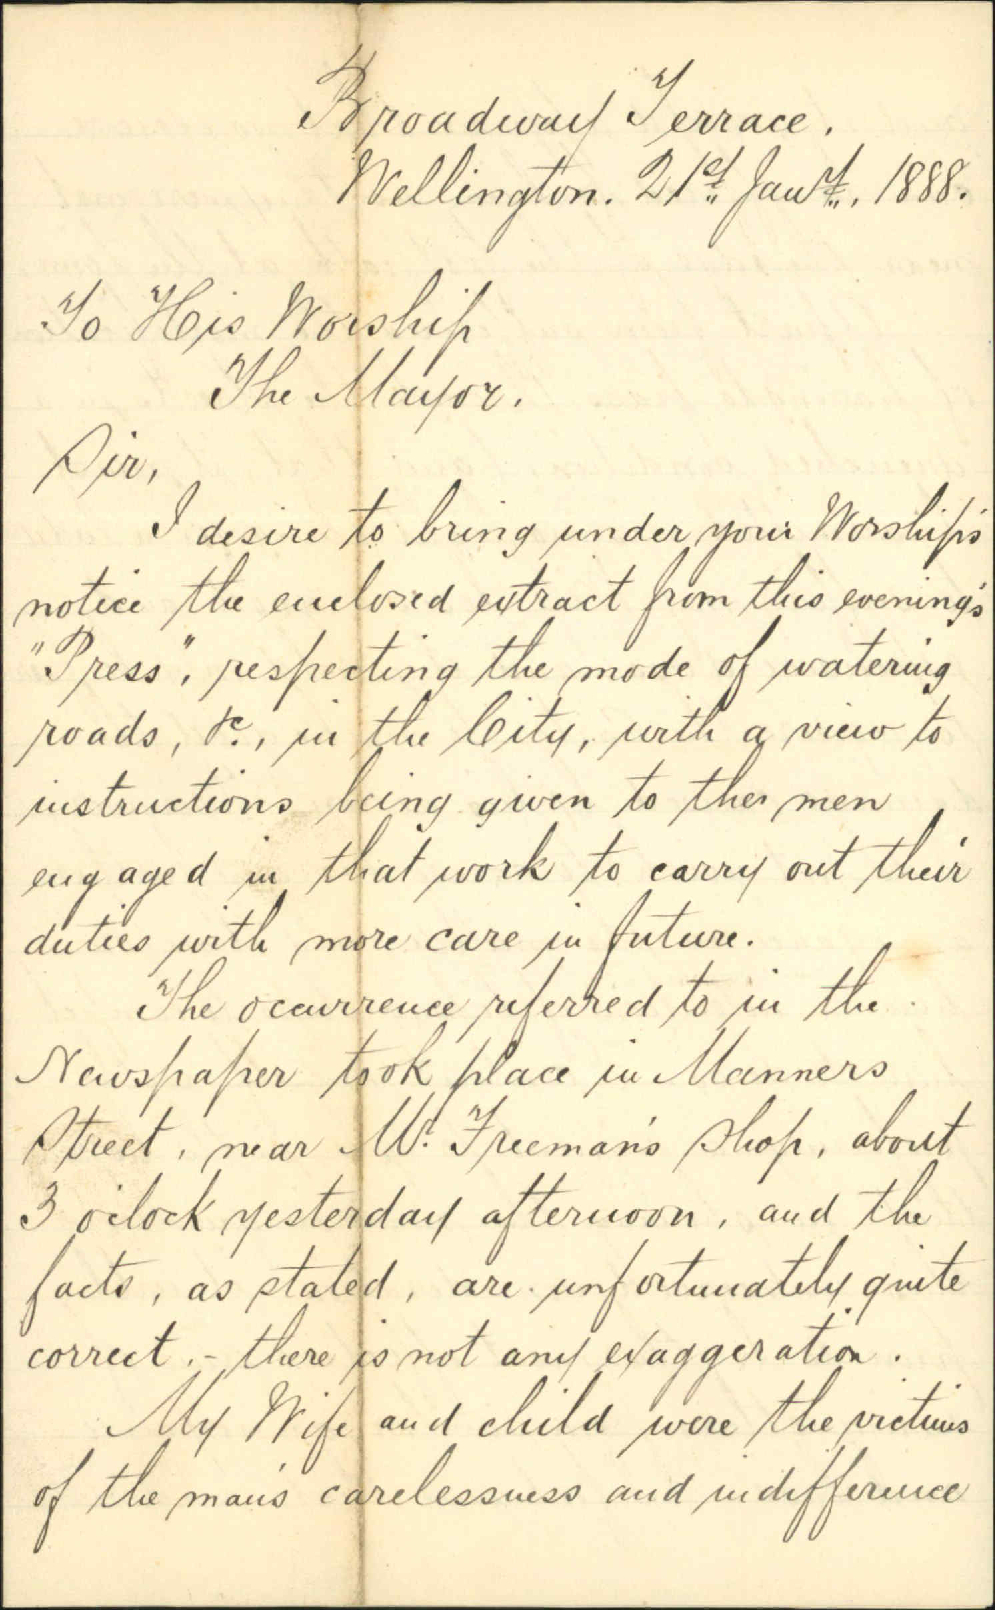 Broadway Terrace.
Wellington. 21st Jany., 1888.
To His Worship
The Mayor.
Sir,
I desire to bring under your Worship's
notice the enclosed extract from this evening's
"Press", respecting the mode of watering
roads, &c., in the City, with a view to
instructions being given to the men
engaged in that work to carry out their
duties with more care in future.
The occurrence referred to in the
Newspaper took place in Manners
Street, near Mr. Freeman's shop, about
3 o'clock yesterday afternoon, and the
facts, as stated, are unfortunately quite
correct. - there is not any exaggeration.
My Wife and child were the victims
of the man's carelessness and indifference